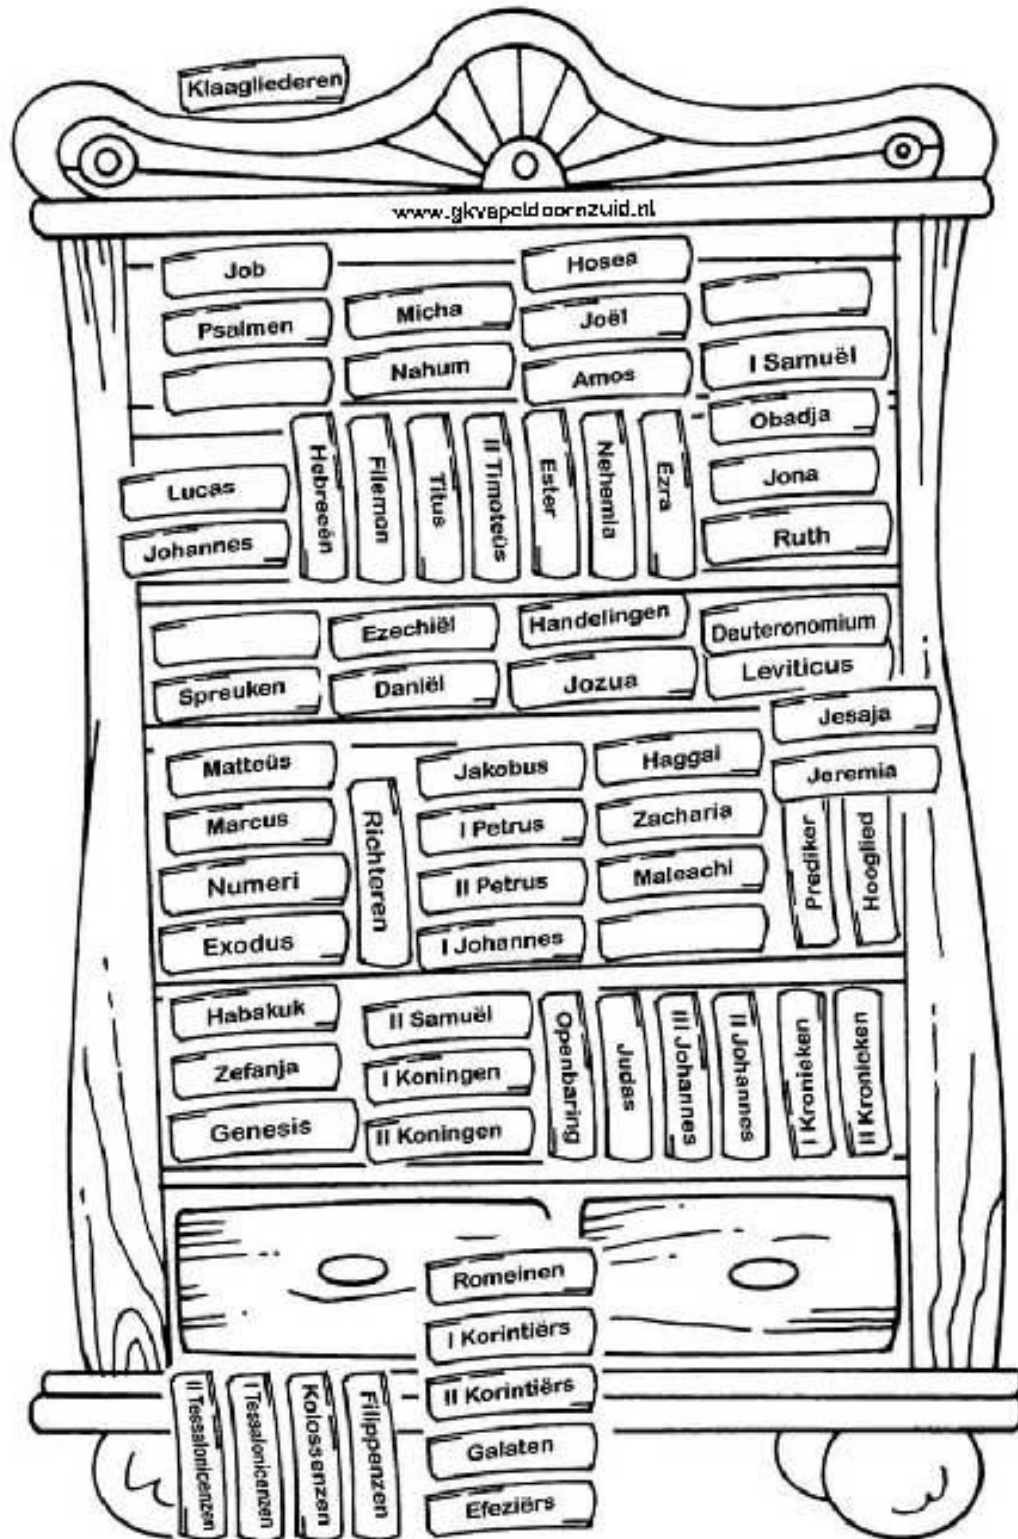 Klaagliederen
www.gkvapeldoornzuid.nl
Job
Psalmen
Micha
Nahum
Hosea
Joël
Amos
I Samuël
Obadja
Jona
Ruth
Lucas
Johannes
Hebreeën
Filemon
Titus
II Timoteüs
Ester
Nehemia
Ezra
Spreuken
Ezechiël
Daniël
Handelingen
Jozua
Deuteronomium
Leviticus
Jesaja
Jeremia
Matteüs
Marcus
Numeri
Exodus
Richteren
Jakobus
I Petrus
II Petrus
I Johannes
Haggai
Zacharia
Maleachi
Prediker
Hooglied
Habakuk
Zefanja
Genesis
II Samuël
I Koningen
II Koningen
Openbaring
Judas
III Johannes
II Johannes
I Kronieken
II Kronieken
Romeinen
I Korintiërs
II Korintiërs
Galaten
Efeziërs
II Tessalonicenzen
I Tessalonicenzen
Kolossenzen
Filippenzen